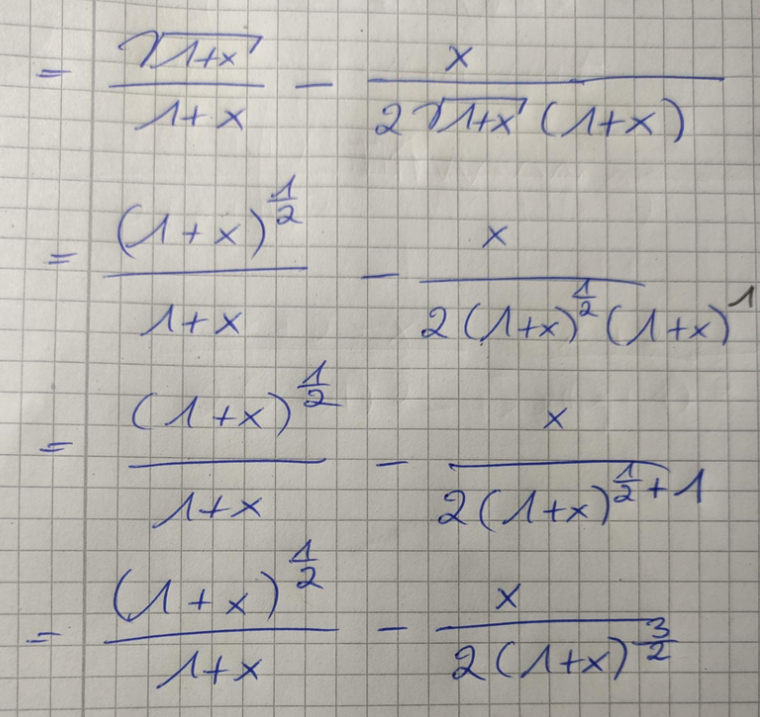 = √(1+x) / (1+x) − x / (2√(1+x) (1+x))
= (1+x)^(1/2) / (1+x) − x / (2(1+x)^(1/2) (1+x)^1)
= (1+x)^(1/2) / (1+x) − x / (2(1+x)^(1/2 + 1))
= (1+x)^(1/2) / (1+x) − x / (2(1+x)^(3/2))